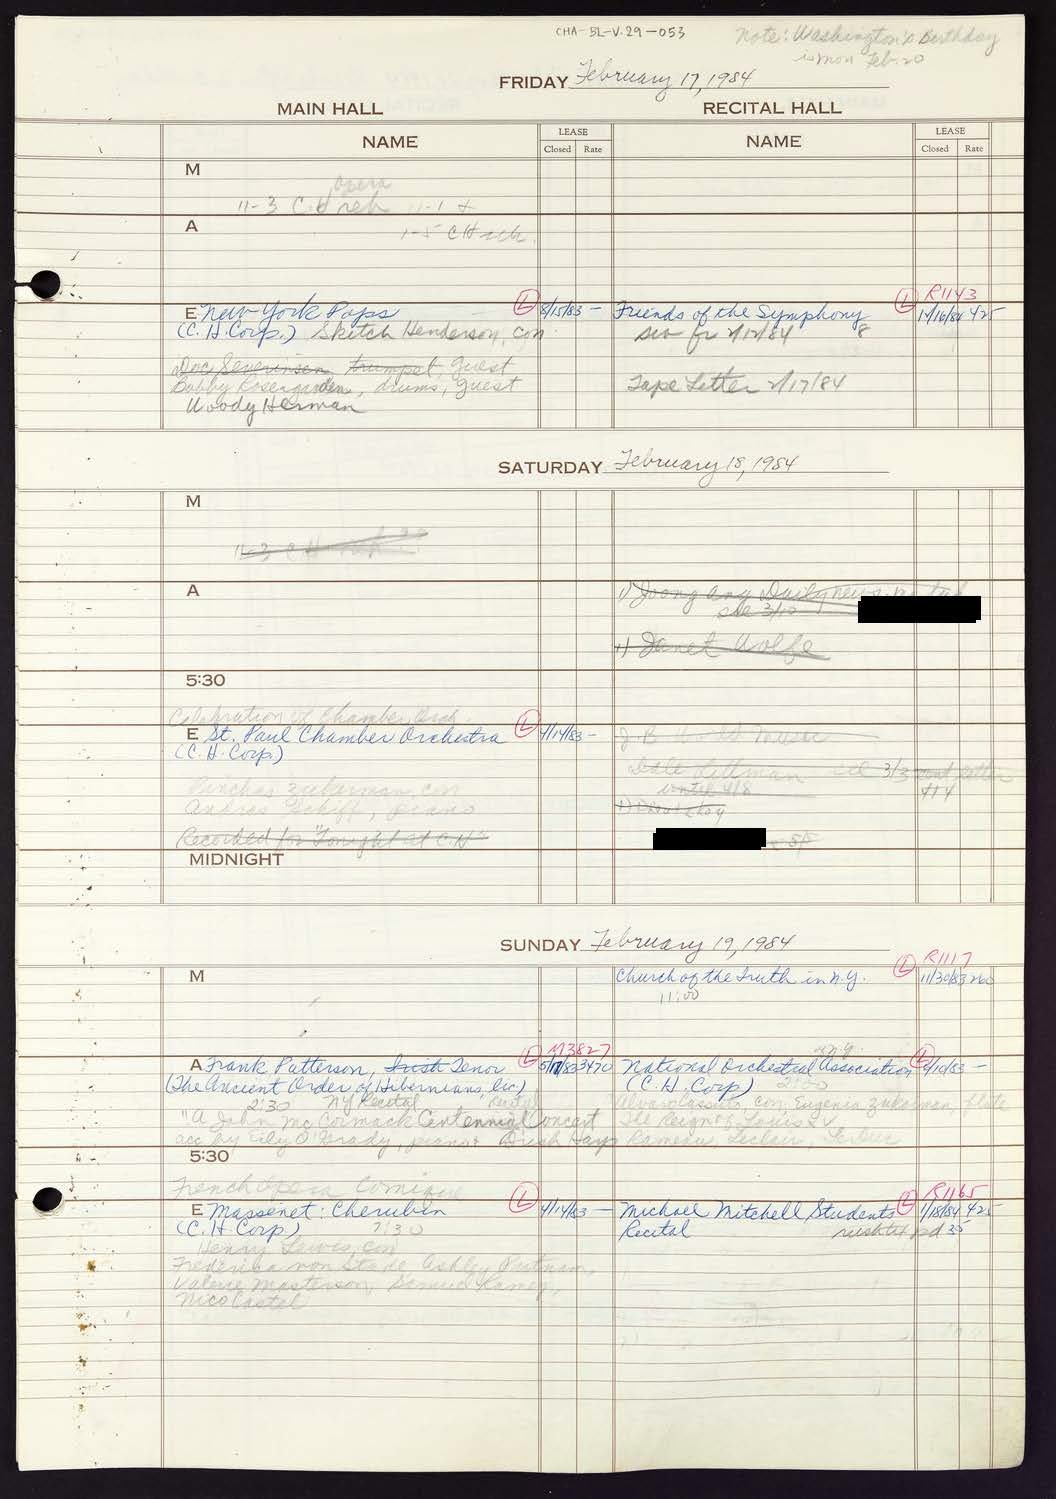 CHA-BL-V.29-053
Note: Washington's Birthday
is Mon Feb. 20
FRIDAY February 17, 1984
MAIN HALL
RECITAL HALL
NAME
LEASE
Closed Rate
NAME
LEASE
Closed Rate
M
Opera
11-3 C.H reh 11-1 +
A
1-5 CH
E New York Pops (L) 8/15/83 –
(C.H. Corp.) Skitch Henderson, con
Doc Severinsen trumpet, guest
Bobby Rosengarden, drums, guest
Woody Herman
R1143
Friends of the Symphony (L) 1/16/84 425
2/12/84
Tape Letter 2/17/84
SATURDAY February 18, 1984
M
11-3 C H
A
1) Joong ang Daily news
see 3/10
1) Janet Wolfe
5:30
Celebration of Chamber Orch.
E St. Paul Chamber Orchestra (L) 4/14/83 –
(C.H. Corp.)
Pinchas Zukerman, con
Andras Schiff, piano
Recorded for "Tonight at C.H"
J.B World Music
Dale Littman 3/3
until 4/8
MIDNIGHT
SUNDAY February 19, 1984
M
R1117
Church of the Truth in N.Y. (L) 11/30/83 260
11:00
M3827
A Frank Patterson, Irish Tenor (L) 5/17/83 3470
(The Ancient Order of Hibernians, Inc)
2:30 NY Recital
"A John McCormack Centennial Concert
acc by Eily O'Grady, piano +
in N.Y.
National Orchestral Association (L) 4/14/83 –
(C.H. Corp) 2:00
Alvaro Cassuto con. Eugenia Zukerman, flute
The Reign of Louis XV
Rameau, Leclair,
5:30
French Opera Comique
E Massenet: Cherubin (L) 4/14/83 –
(C.H. Corp) 7:30
Henry Lewis, con
Frederica von Stade, Ashley Putnam,
Valerie Masterson, Samuel Ramey,
Nico Castel
R1165
Michael Mitchell Students (L) 1/18/84 425
Recital pd 35